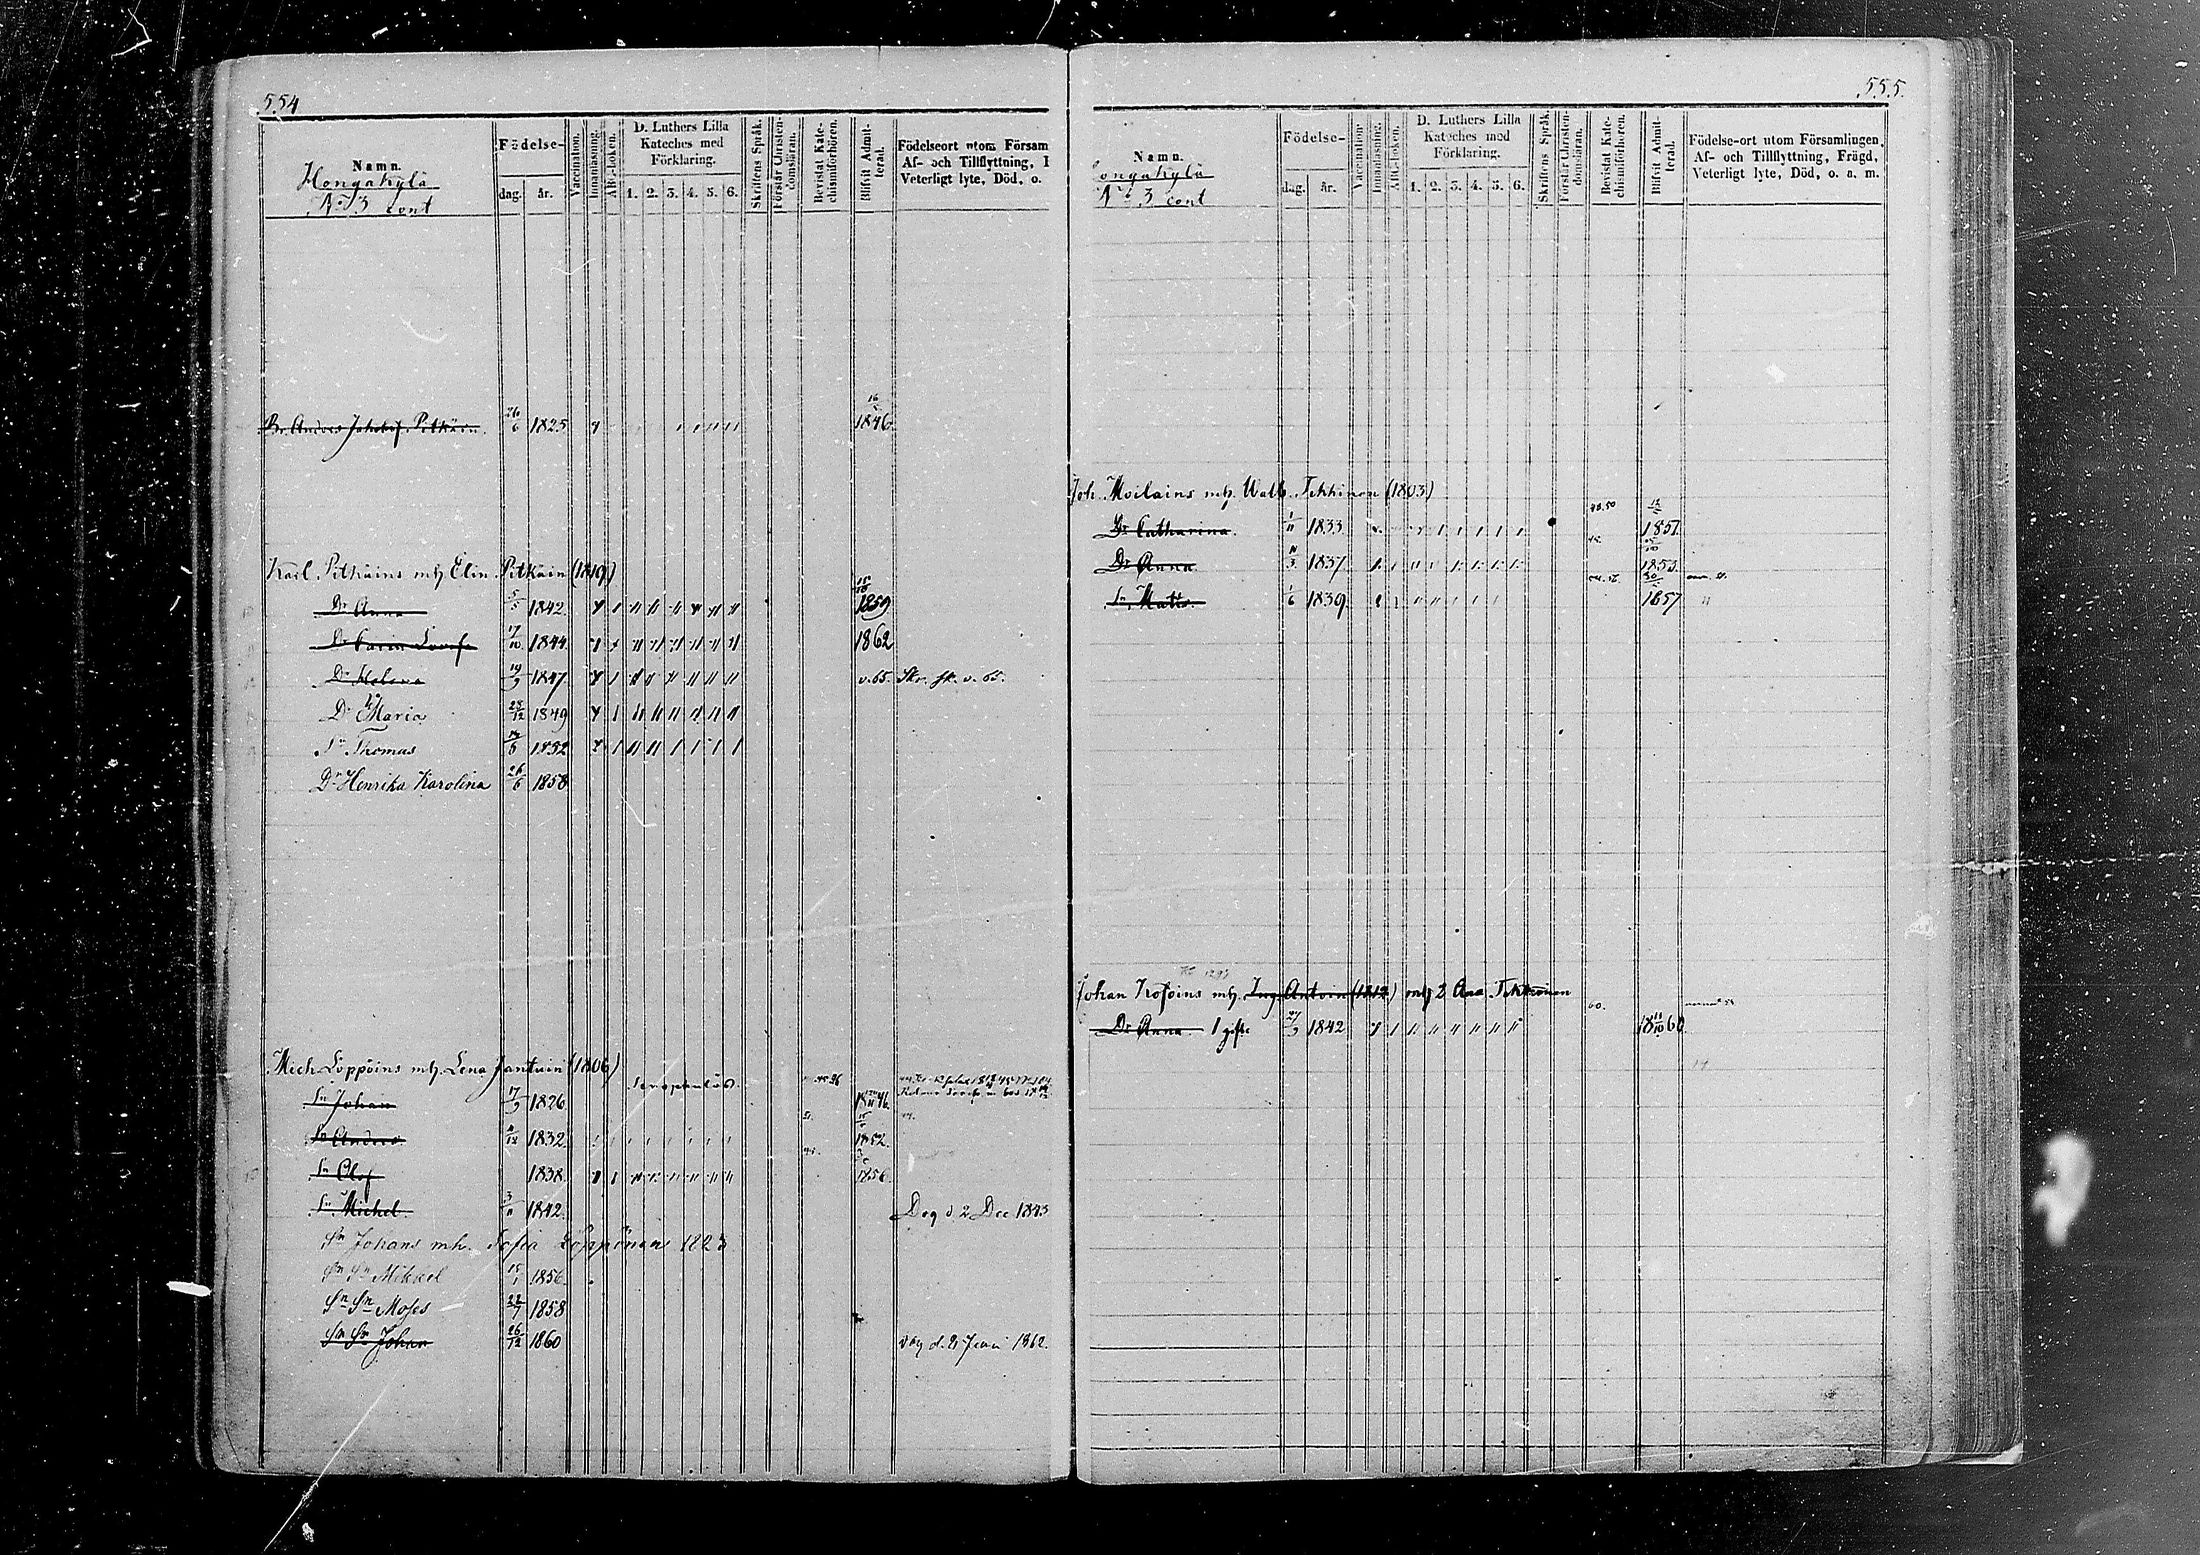 554
Namn.
Hongakylä
No 3 cont
Födelse-
dag. år.
Vaccination.
Innanläsning.
ABC-boken.
D. Luthers Lilla
Kateches med
Förklaring.
1. 2. 3. 4. 5. 6.
Skriftens Språk.
Förstår Christen-
domsläran.
Bevistat Kate-
chismiförhören.
Blifvit Admit-
terad.
Födelseort utom Försam
Af- och Tillflyttning, F
Veterligt lyte, Död, o.
26/6 1825 1846
Karl Pitkäins mh Elin Pitkäin (1819)
Dr Anna 5/5 1842 15/10 1859
Dr Carin Lovisa 17/10 1844 1862
Dr Helena 19/9 1847 v. 65. Skr. sk. v. 65.
Dr Maria 25/12 1849
Sn Thomas 1852
Dr Henrika Karolina 26/6 1858
Mich Löppöins mh. Lena Jantuin (1806)
Sn Johan 17/9 1826 1846
Sn Anders 1832 1852
Sn Olof 1838 1856
Sn Michel 3/11 1842 Dog d. 2 Dec 1843
Sn Johans mh. Sofia Löppönen 1823
Sn Sn Mikael 15/1 1856
Sn Sn Moses 22/7 1858
Sn Sn Johan 26/12 1860 dog d. 2 Juni 1862.
555.
Namn.
ongakylä
No 3 cont
Födelse-
dag. år.
Vaccination.
Innanläsning.
ABC-boken.
D. Luthers Lilla
Kateches med
Förklaring.
1. 2. 3. 4. 5. 6.
Skriftens Språk.
Förstår Christen-
domsläran.
Bevistat Kate-
chismiförhören.
Blifvit Admit-
terad.
Födelse-ort utom Församlingen
Af- och Tillflyttning, Frägd,
Veterligt lyte, Död, o. a. m.
Joh. Moilains mh. Walb. Tekkinen (1803)
48.50
Dr Catharina 1/11 1833 1851
Dr Anna 1837 1853
Sn Matts 1/6 1839 1857
Johan mh. (1812) mh 2 Ana Tekkinen
60.
Dr Anna 1 gift 27/9 1842 18 11/10 60